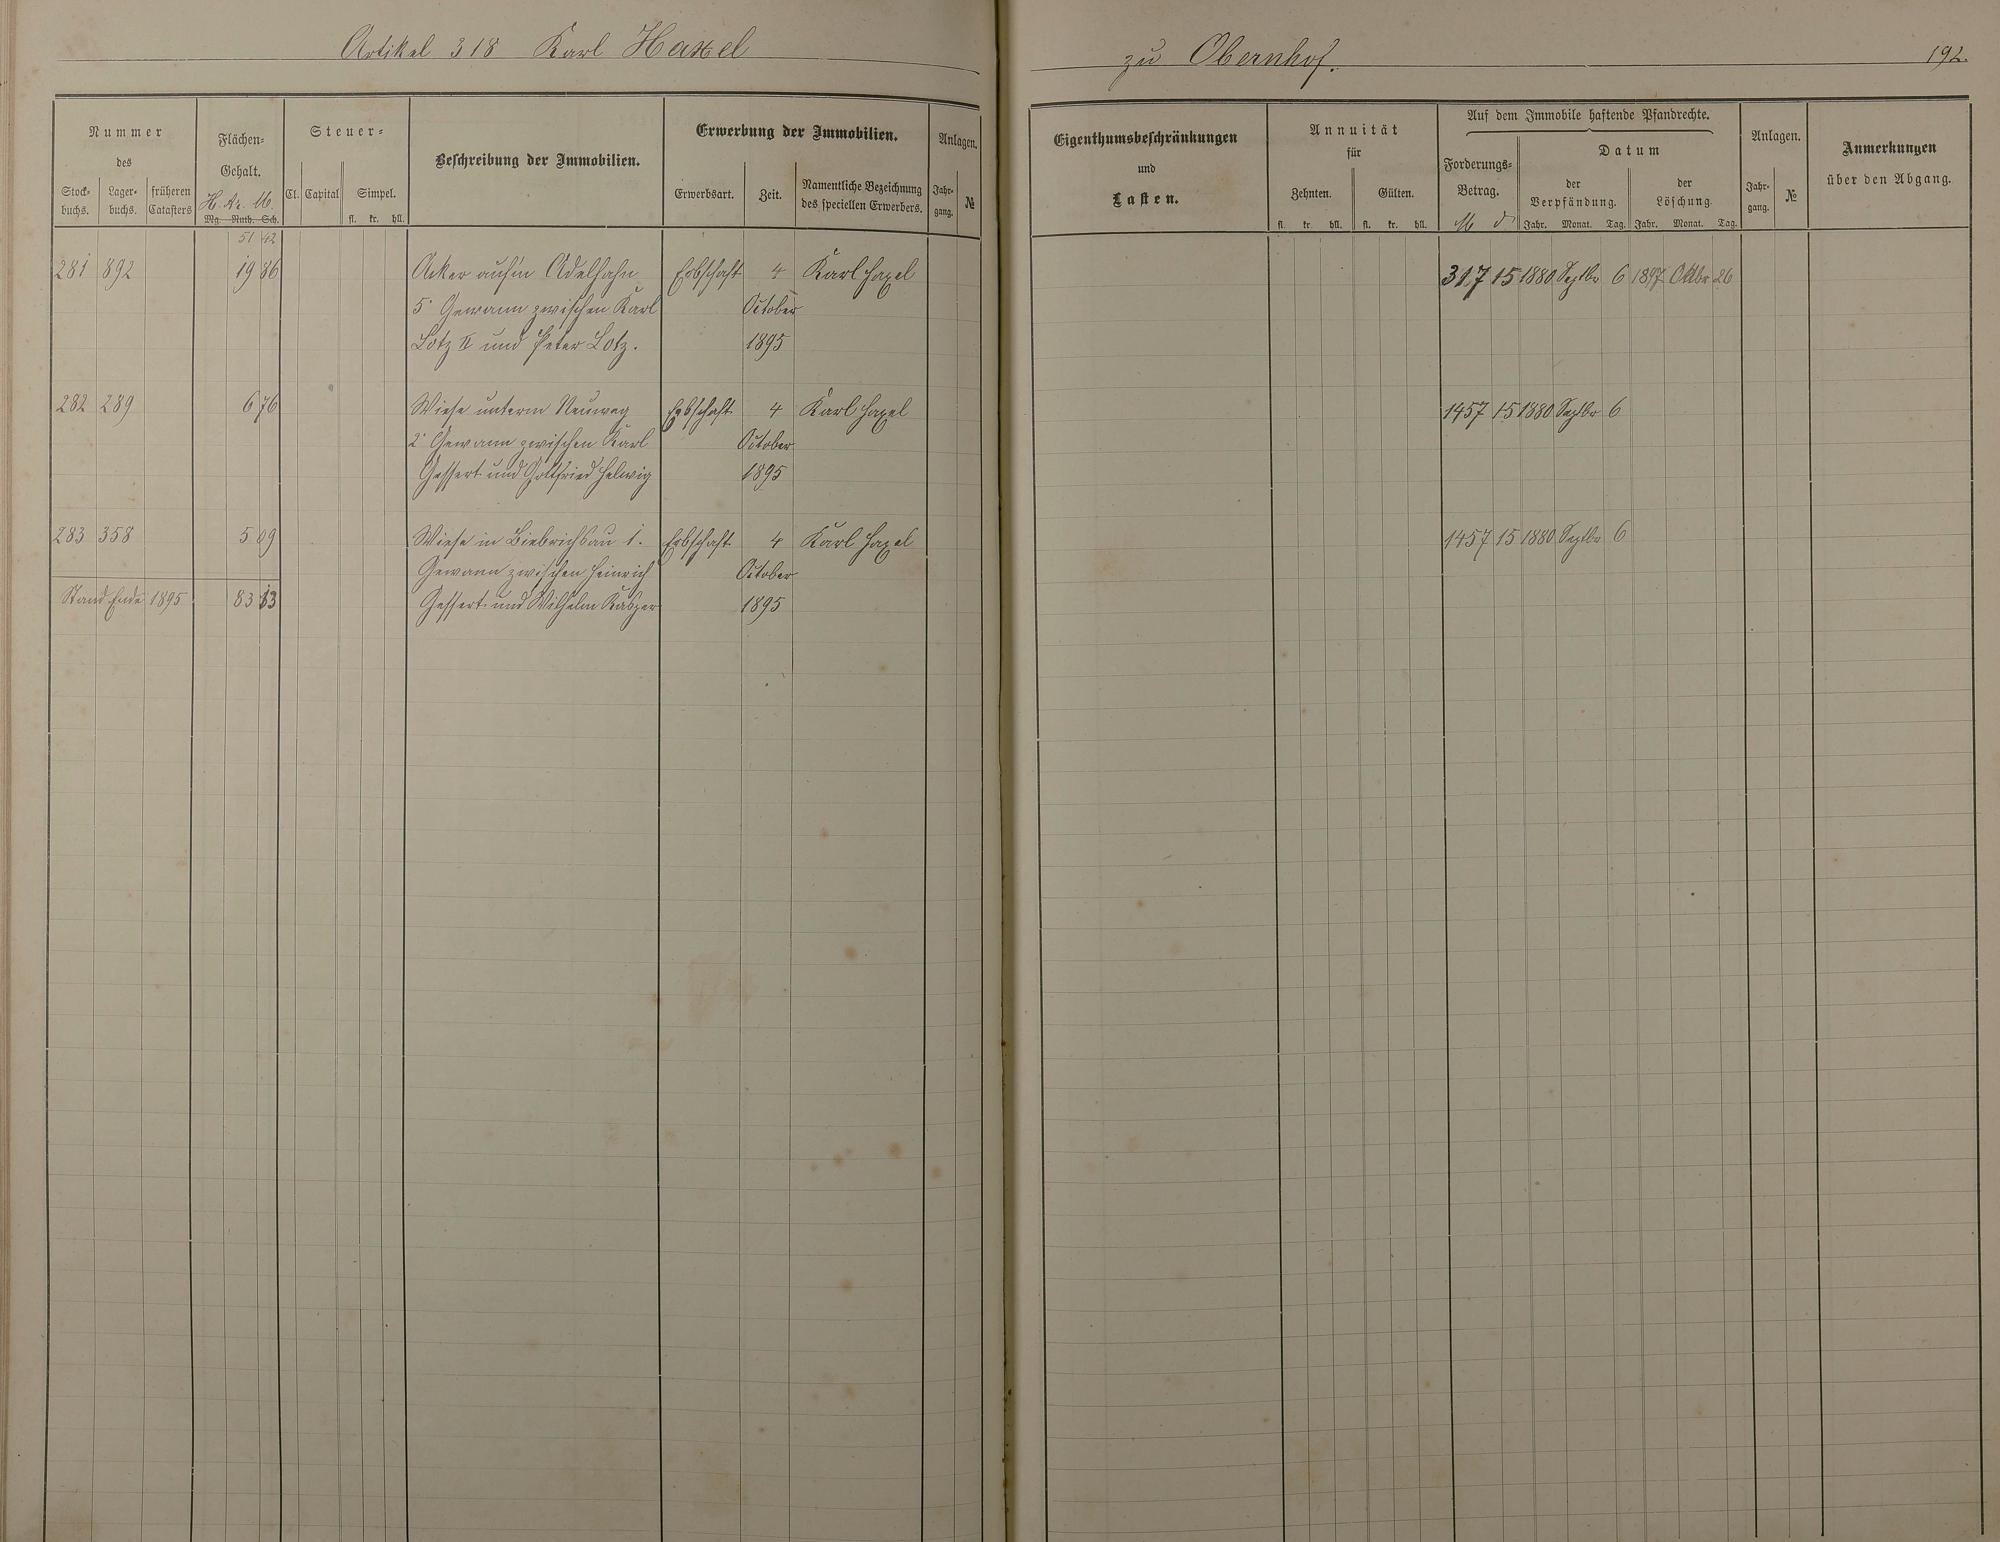 Artikel 318 Karl Haxel
zu Obernhof.
192.
Nummer
des
Stock-
buchs.
Lager-
buchs.
früheren
Catasters
Flächen-
Gehalt.
H. Ar. M.
Mg. Ruth. Sch.
Steuer-
Cl. Capital Simpel.
fl. kr. hll.
Beschreibung der Immobilien.
Erwerbung der Immobilien.
Erwerbsart. Zeit.
Namentliche Bezeichnung
des speciellen Erwerbers.
Anlagen.
Jahr-
gang.
№
Eigenthumsbeschränkungen
und
Lasten.
Annuität
für
Zehnten. Gülten.
fl. kr. hll. fl. kr. hll.
Auf dem Immobile haftende Pfandrechte.
Forderungs-
Betrag.
Datum
der
Verpfändung.
der
Löschung
Jahr. Monat. Tag. Jahr. Monat. Tag.
Anlagen.
Jahr-
gang.
№
Anmerkungen
über den Abgang.
51 42
281 892 19 86 Acker auf'm Adelhahn Erbschaft 4 Karl Haxel 317 15 1880 Septbr 6 1897 Oktbr 26
5' Gewann zwischen Karl October
Lotz II und Peter Lotz. 1895
282 289 6 76 Wiese unterm Neuweg Erbschaft 4 Karl Haxel 1457 15 1880 Septbr 6
2' Gewann zwischen Karl October
Gessert und Gottfried Helwig 1895
283 358 5 09 Wiese in Biebrichsau 1. Erbschaft 4 Karl Haxel 1457 15 1880 Septbr 6
Gewann zwischen Heinrich October
Stand Ende 1895 83 13 Gessert und Wilhelm Kasper 1895